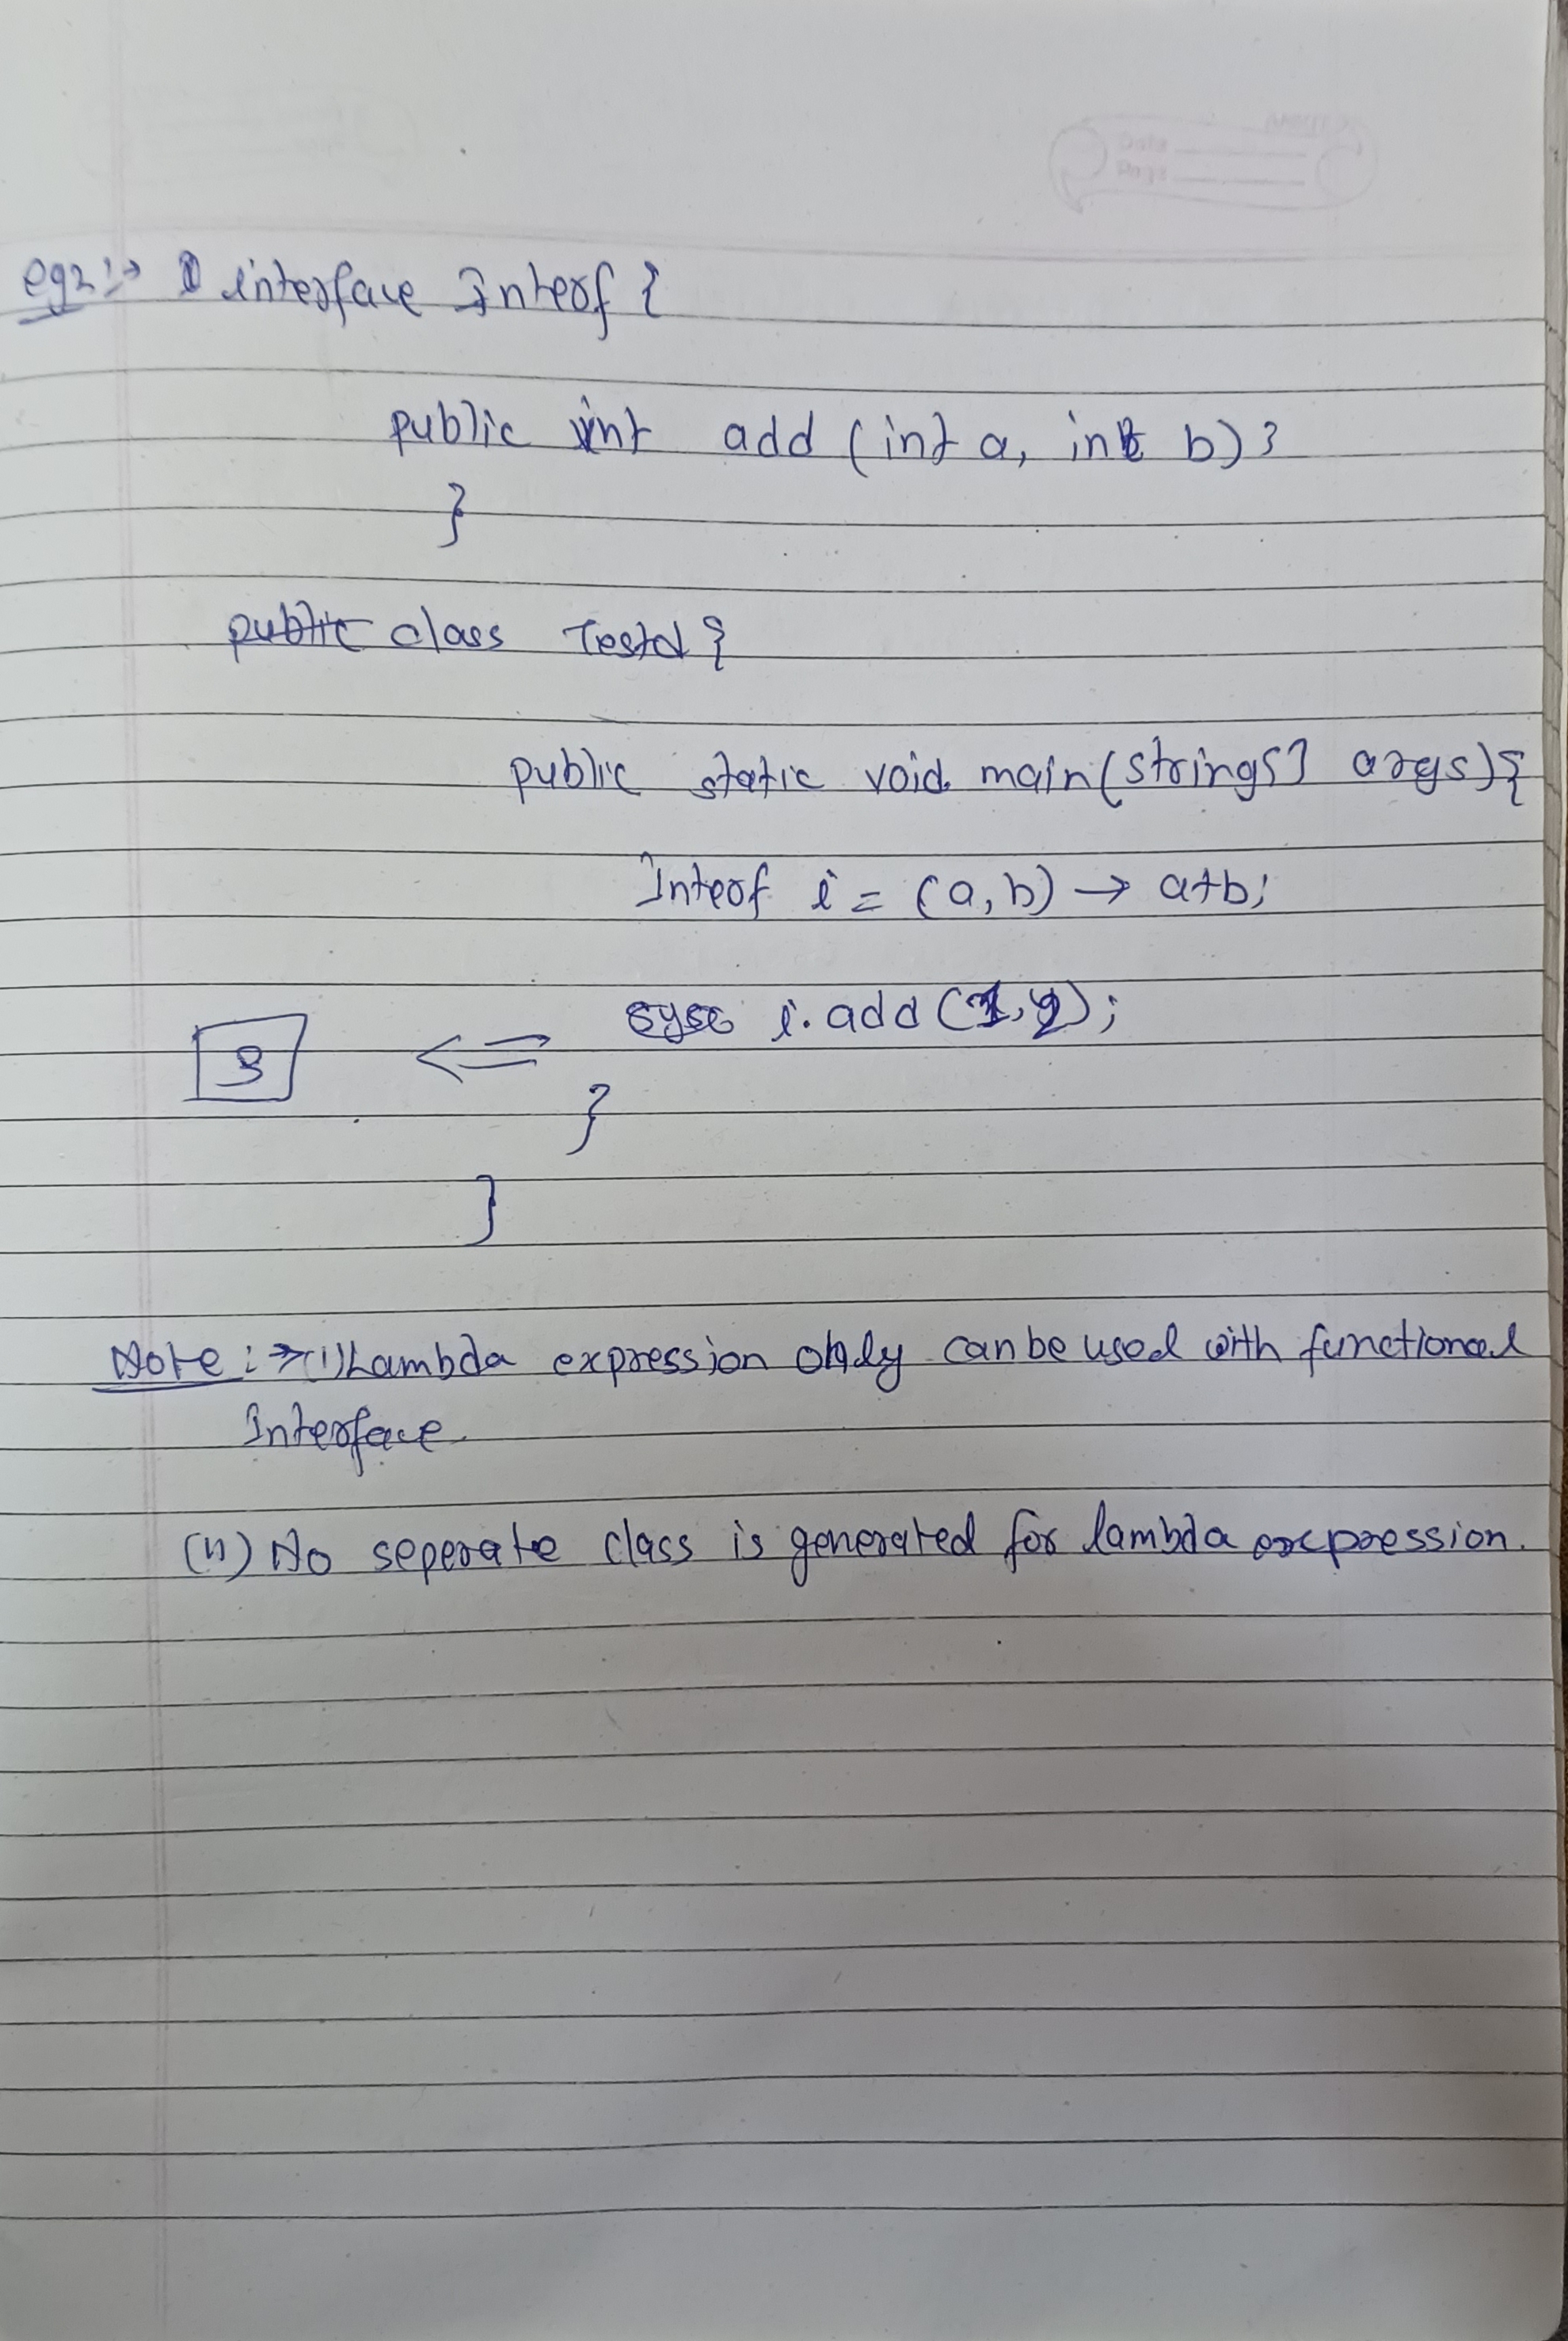 eg2:→ interface Interf {
public int add (int a, int b);
}
public class Testd {
public static void main(string[] args){
Interf i = (a,b) → a+b;
syso i.add (1,2);
3 <=
}
}
Note :→(i) Lambda expression only can be used with functional
Interface.
(ii) No seperate class is generated for lambda expression.